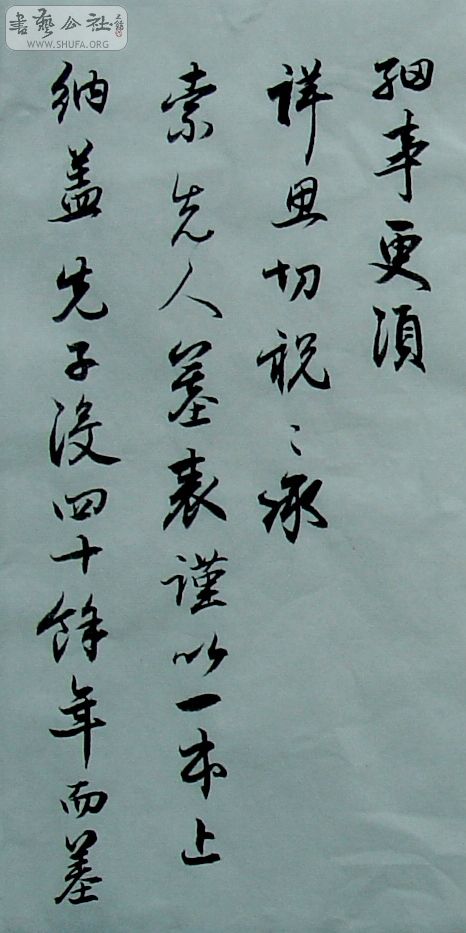 書藝公社
WWW.SHUFA.ORG
細事更須
詳思切祝〻承
索先人墓表謹以一本上
納盖先子沒四十餘年而墓